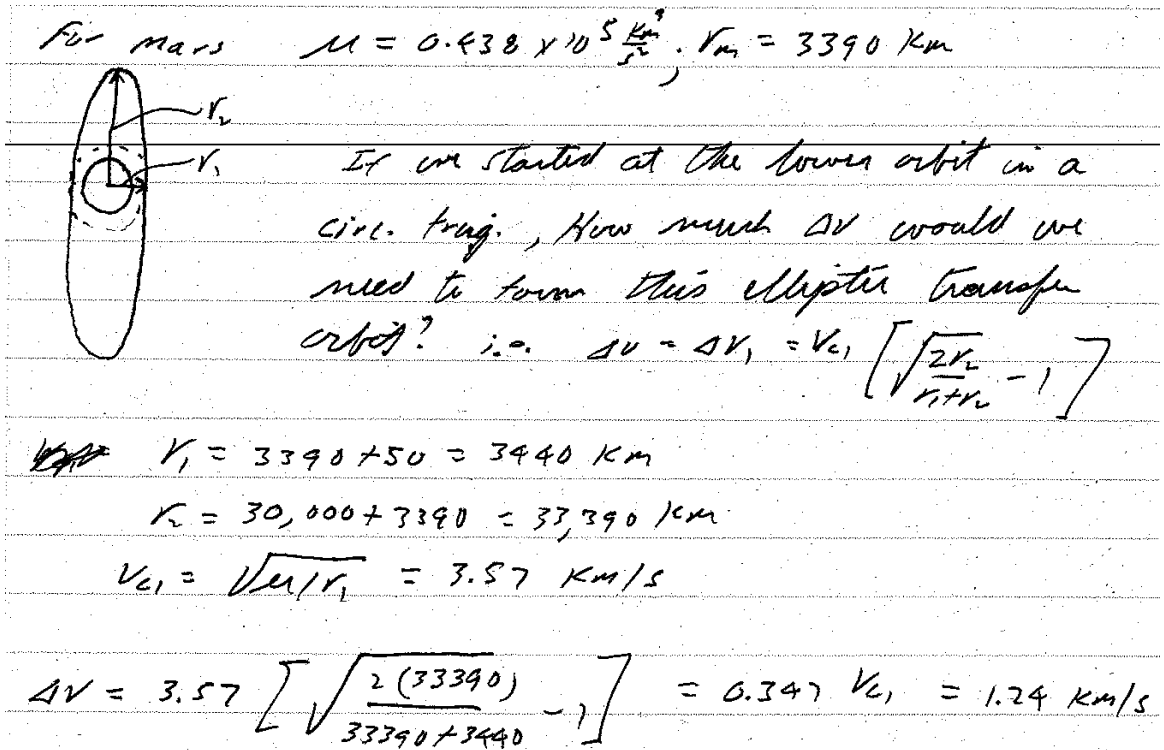 For Mars μ = 0.438 x 10^5 km^3/s^2; r_m = 3390 km
r_2
r_1
If we started at the lower orbit in a
circ. traj., How much ΔV would we
need to form this elliptic transfer
orbit? i.e. ΔV = ΔV_1 = V_c1 [√(2r_2/(r_1+r_2)) - 1]
r_1 = 3390 + 50 = 3440 km
r_2 = 30,000 + 3390 = 33,390 km
V_c1 = √(μ/r_1) = 3.57 km/s
ΔV = 3.57 [√(2(33390)/(33390+3440)) - 1] = 0.347 V_c1 = 1.24 km/s